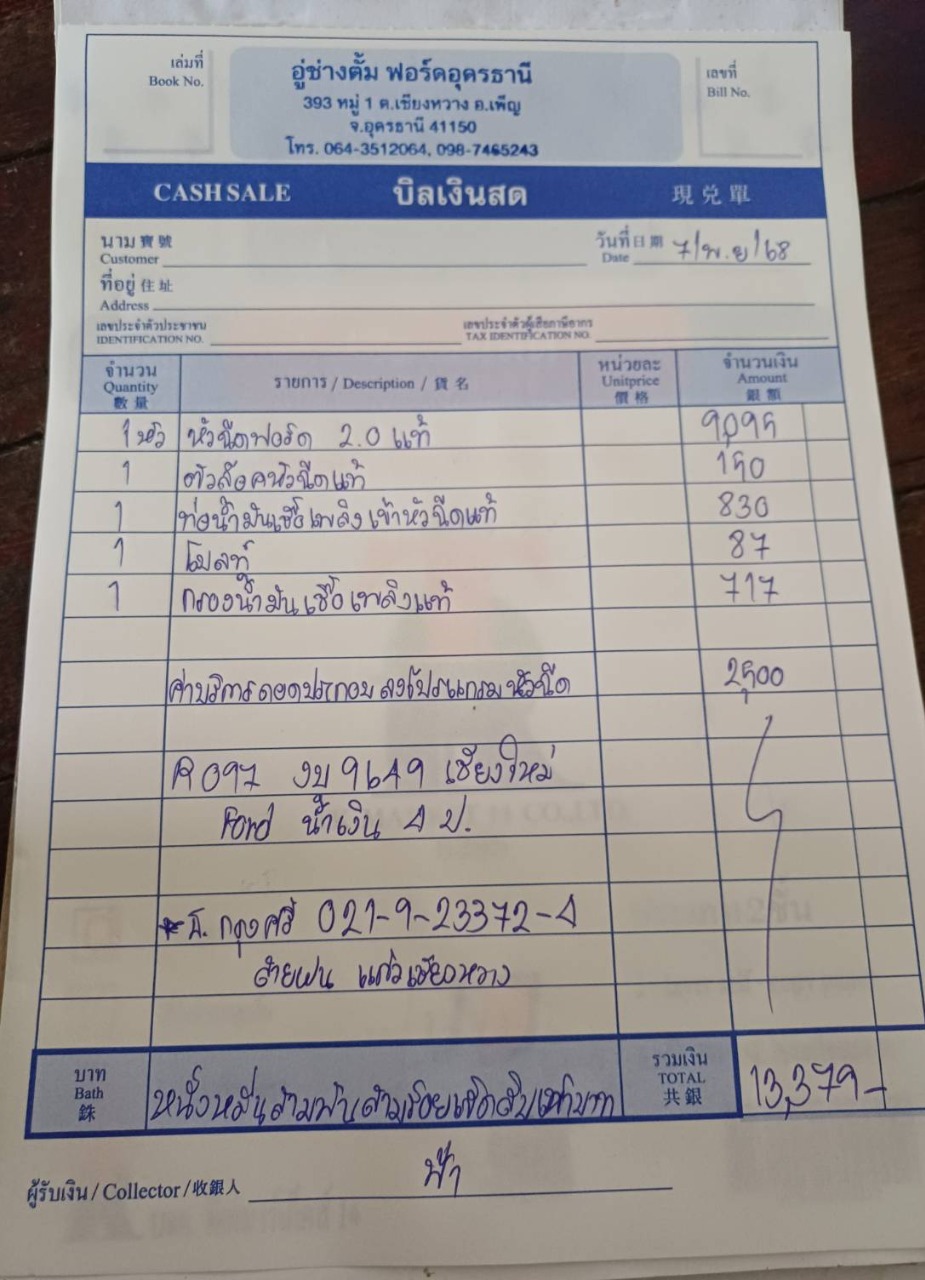 เล่มที่
Book No.
อู่ช่างตั้ม ฟอร์ดอุดรธานี
393 หมู่ 1 ต.เชียงหวาง อ.เพ็ญ
จ.อุดรธานี 41150
โทร. 064-3512064, 098-7465243
เลขที่
Bill No.
CASH SALE บิลเงินสด 現兌單
นาม 寶號
Customer
วันที่ 日期
Date 7/พ.ย/68
ที่อยู่ 住址
Address
เลขประจำตัวประชาชน
IDENTIFICATION NO.
เลขประจำตัวผู้เสียภาษีอากร
TAX IDENTIFICATION NO.
จำนวน
Quantity
數量
รายการ / Description / 貨名
หน่วยละ
Unitprice
價格
จำนวนเงิน
Amount
銀額
1 หัว หัวฉีดฟอร์ด 2.0 แท้ 9,095
1 ตัวล๊อคหัวฉีดแท้ 150
1 ท่อน้ำมันเชื้อเพลิงเข้าหัวฉีดแท้ 830
1 โบลท์ 87
1 กรองน้ำมันเชื้อเพลิงแท้ 717
ค่าบริการถอดประกอบ ลงโปรแกรมหัวฉีด 2,500
R097 งบ 9649 เชียงใหม่
Ford น้ำเงิน 4 ป.
* ธ. กรุงศรี 021-9-23372-4
สายฝน แก้วเชียงหวาง
บาท
Bath
銖
หนึ่งหมื่นสามพันสามร้อยเจ็ดสิบเก้าบาท
รวมเงิน
TOTAL
共銀
13,379-
ผู้รับเงิน / Collector / 收銀人 ฟ้า